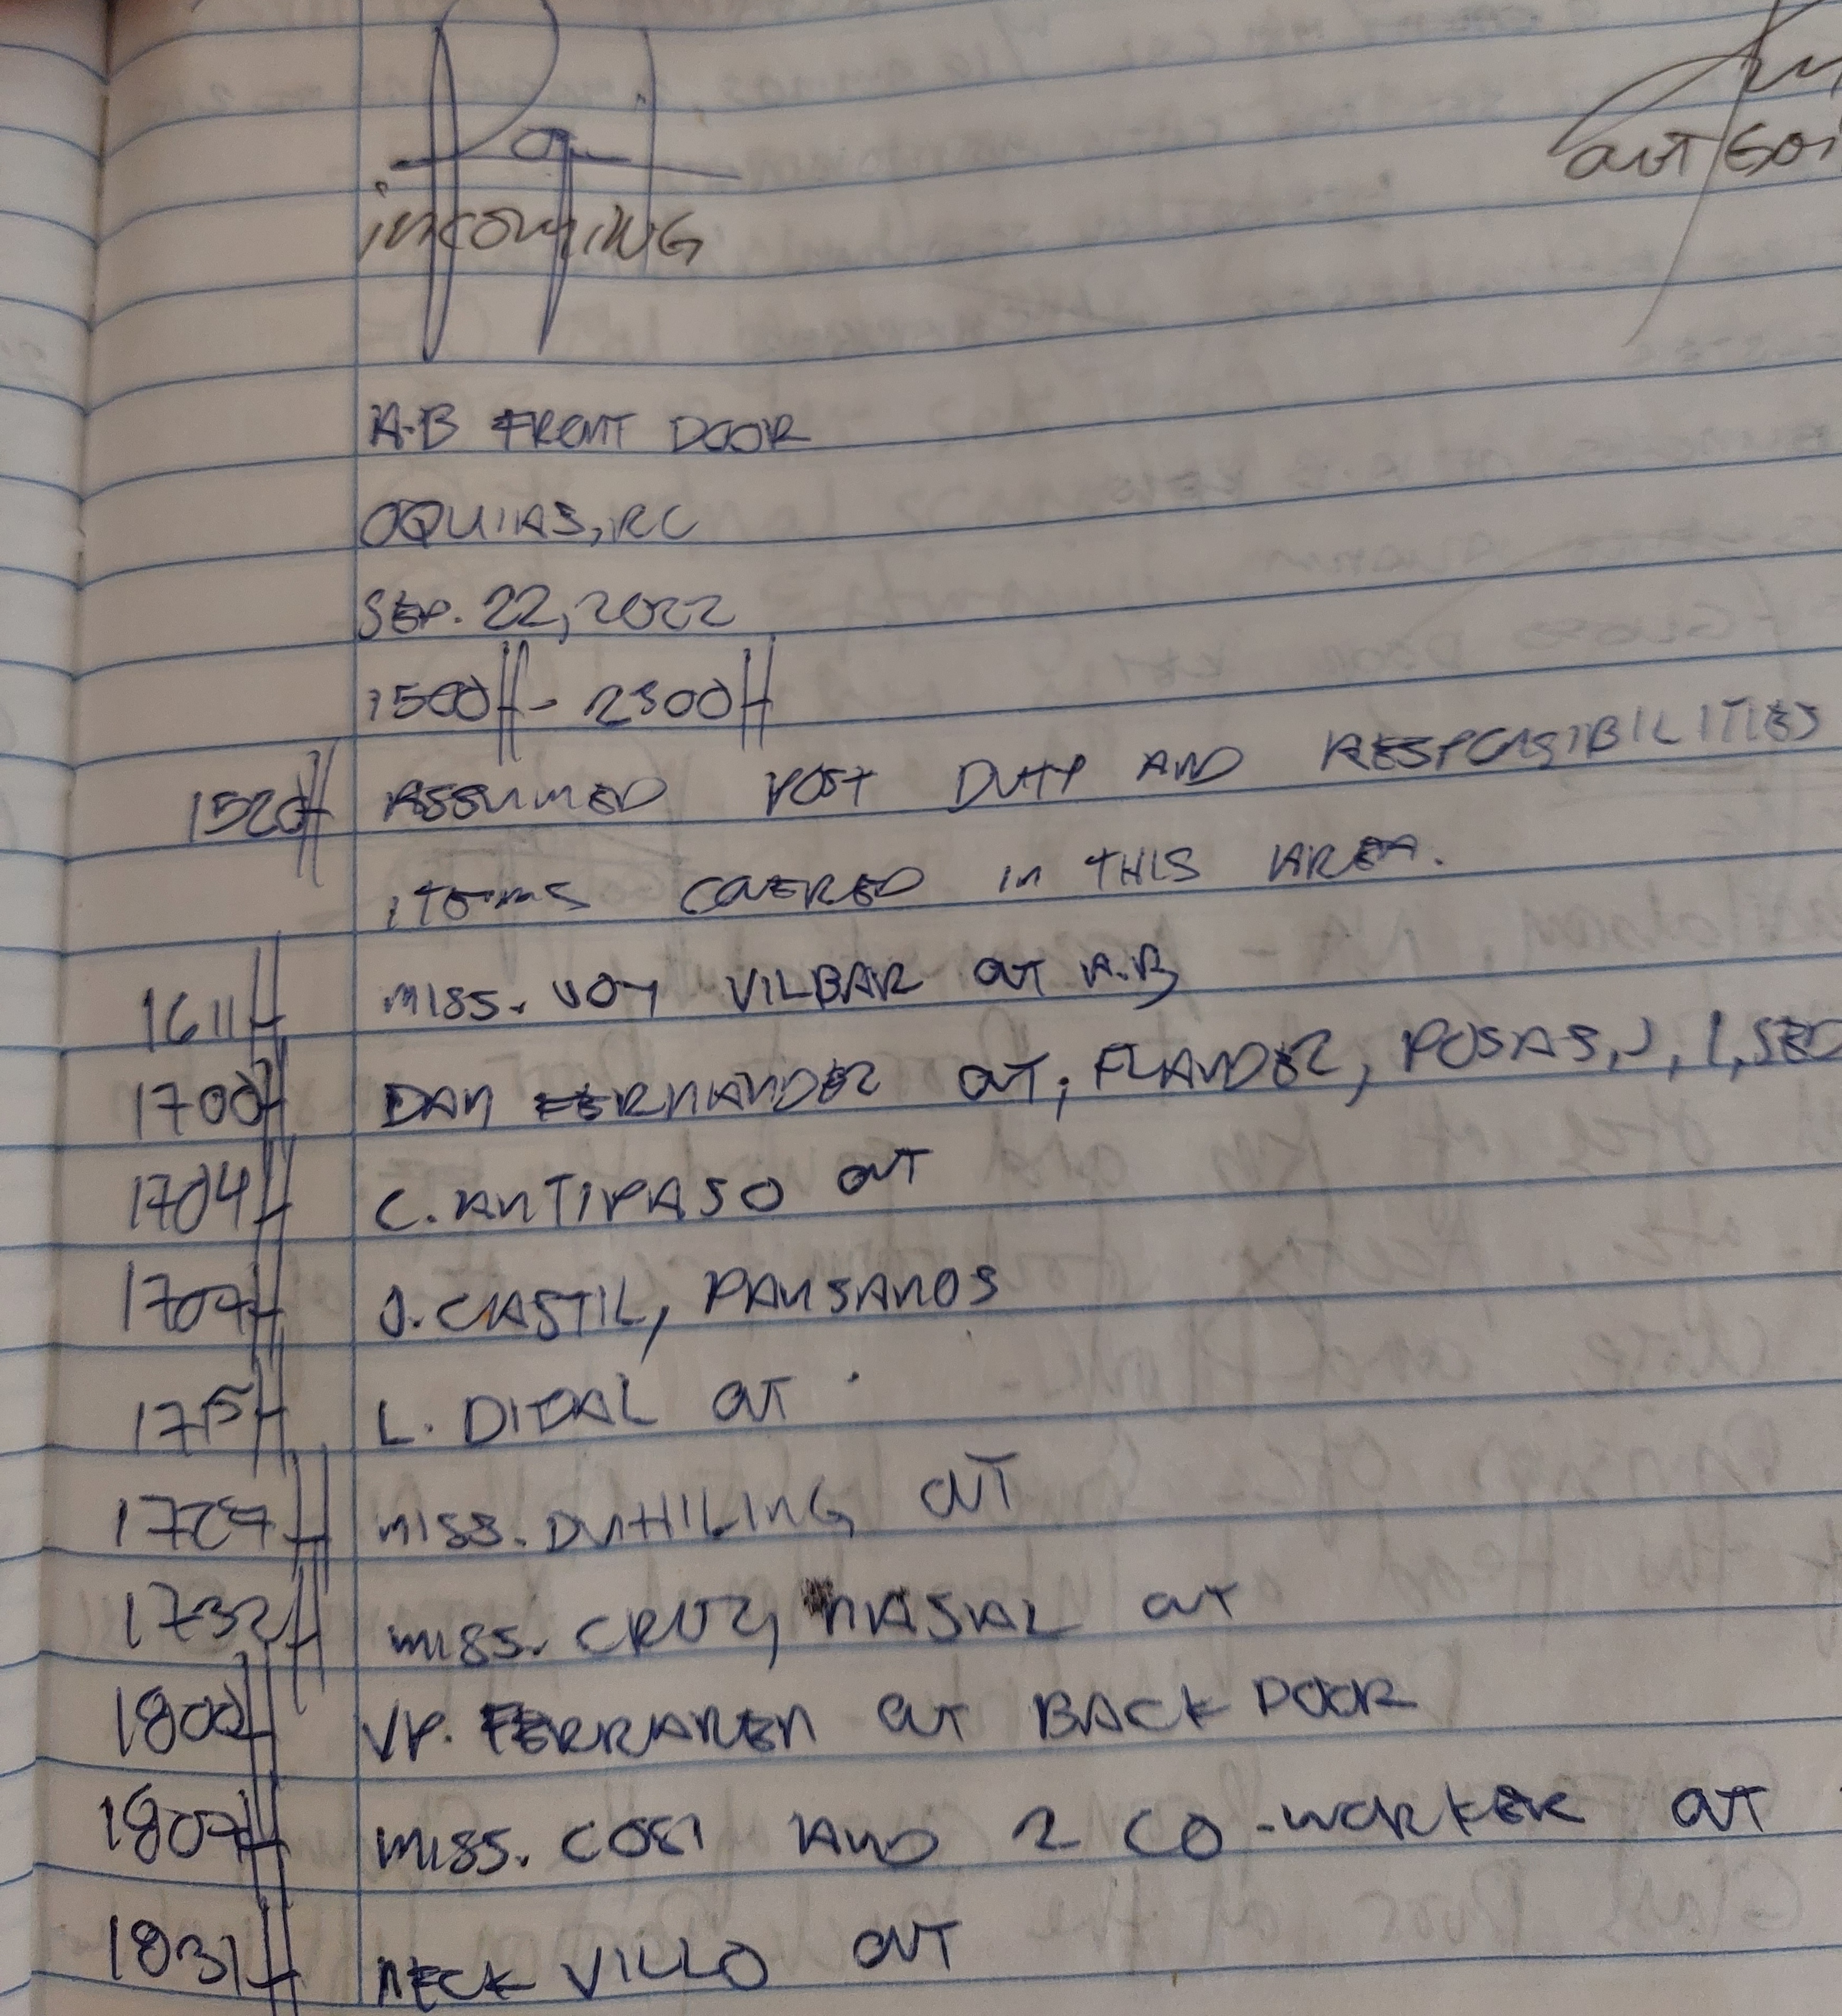 incoming
OUT GOI
A.B FRONT DOOR
OQUIAS, RC
SEP. 22, 2022
1500H - 2300H
1520H ASSUMED POST DUTY AND RESPOSIBILITIES
ITEMS COVERED IN THIS AREA.
1611H MISS. JOY VILBAR OUT A.B
1700H DAN FERNANDEZ OUT, FLANDEZ, POSAS, J, I, SED
1704H C. ANTIPASO OUT
1707H J. CASTIL, PANSANOS
1715H L. DITAL OUT
1727H MISS. DUHILING OUT
1732H MISS. CRUZ, NASAL OUT
1800H VP. FERRAREN OUT BACK DOOR
1807H MISS. COSI AND 2 CO-WORKER OUT
1831H NECK VILLO OUT